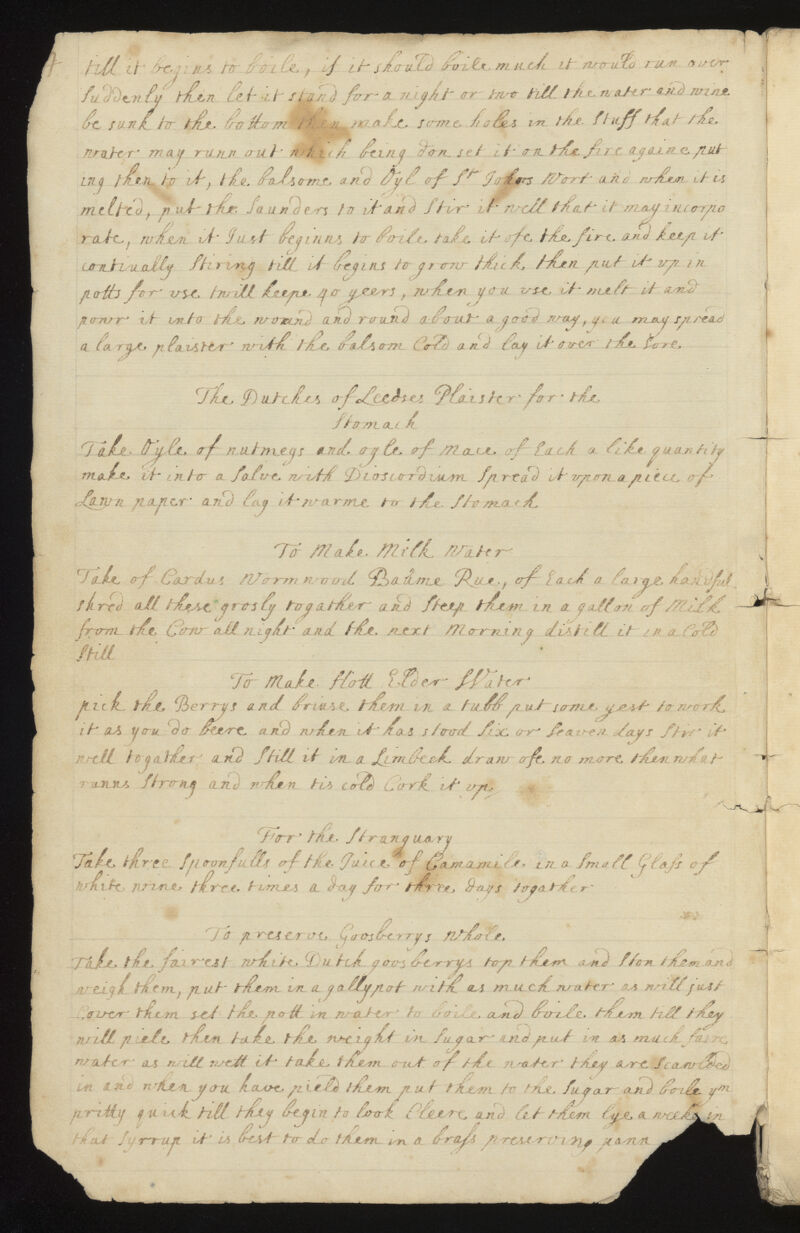 till it begins to boile, if it should boile much it would run over
Suddenly then let it stand for a night or two till the water and wine
be sunk to the bottom then make some holes in the Stuff that the
water may runn out which being don set it on the fire againe put
ing then to it, the balsome and Oyl of St Johns Wort and when it is
melted, put the Saunders to it and Stir it well that it may incorpo
rate, when it Just beginns to boile take it ofe the fire and keep it
contiually Stiring till it begins to grow thick then put it up in
potts for use twill keepe 40 yeers, when you use it melt it and
powr it into the wound and round about a good way, you may spread
a large plaister with the balsom Cold and lay it over the Sore
The Dutches of Leedses Plaister for the
Stomach
Take Oyle of nutmegs and oyle of Mace of Each a like quantity
make it into a Salve with Dioscordium Spread it upon a piece of
Lawn paper and lay it warme to the Stomach
To Make Milk Water
Take of Cardus Wormwood Baume Rue, of Each a large handful
shred all these grosly togather and Steep them in a gallon of Milk
from the Cow all night and the next Morning distill it in a Cold
Still
To Make Hott Elder Water
pick the Berrys and briuse them in a tubb put some yest to work
it as you do beere and when it has stood Six or Seaven days Stir it
well togather and Still it in a Limbeck draw ofe no more then what
runns Strong and when tis cold Cork it up
For the Stranguary
Take three Spoonfulls of the Juice of Camamile in a Small Glass of
white wine three times a day for three days togather
To preserve Goosberrys whole
Take the fairest white Dutch goosberrys top them and Ston them and
weigh them, put them in a gallypot with as much water as will just
Cover them set the pott in water to boile and boile them till they
will piele then take the weight in Sugar and put in as much faire
water as will wett it take them out of the water they are Scawlded
in and when you have pield them put them to the Sugar and boile ym
pritty quick till they begin to look Cleere and let them lye a weeke in
that Syrrup it is best to do them in a brass preserving pann